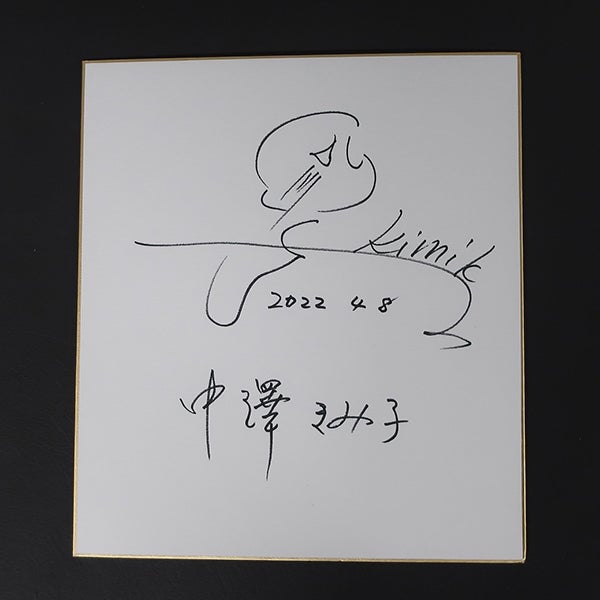 Kimik
2022 4 8
中澤 きみ子